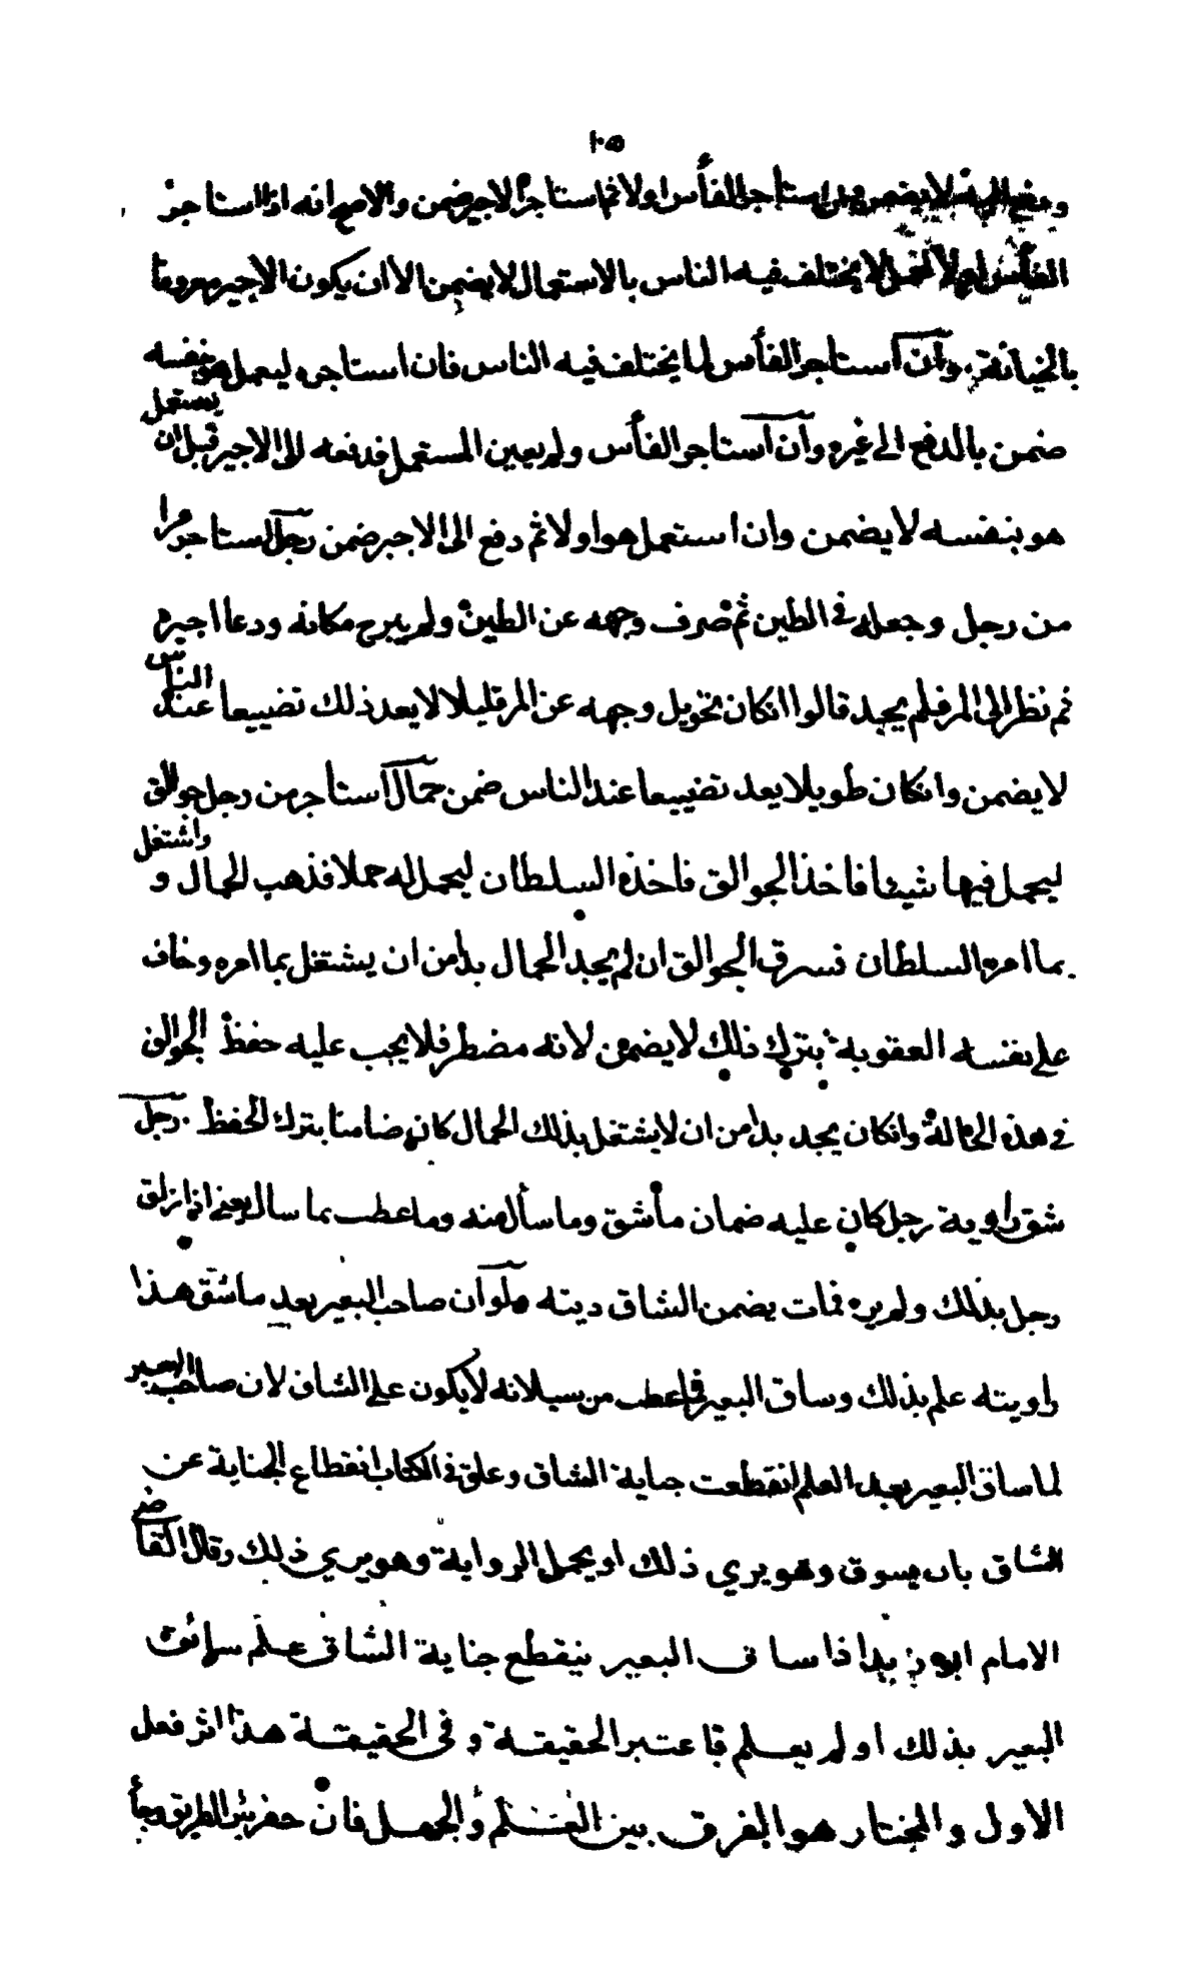 ١٠٥
ودفع اليه لا يضمن وان استاجر الفأس اولا ثم استاجر الاجير ضمن والاصح انه اذا استاجر
الفأس اولا لعمل لا يختلف فيه الناس بالاستعمال لا يضمن الا ان يكون الاجير معروفا
بالخيانة وان استاجر الفأس لما يختلف فيه الناس فان استاجره ليعمل هو بنفسه
ضمن بالدفع الى غيره وان استاجر الفأس ولم يعين المستعمل فدفعه الى الاجير قبل ان يستعمل
هو بنفسه لا يضمن وان استعمل هو اولا ثم دفع الى الاجير ضمن رجل استاجر مرا
من رجل وجعله في الطين ثم صرف وجهه عن الطين ولم يبرح مكانه ودعا اجيره
ثم نظر الى المر فلم يجد قالوا انكان تحويل وجهه عن المر قليلا لا يعد ذلك تضييعا عند الناس
لا يضمن وانكان طويلا يعد تضييعا عند الناس ضمن حمال استاجر من رجل جوالق
ليحمل فيها شيئا فاخذ الجوالق فاخذه السلطان ليحمل له حملا فذهب الحمال و واشتغل
بما امره السلطان فسرق الجوالق ان لم يجد الحمال بدا من ان يشتغل بما امره وخاف
على نفسه العقوبة بترك ذلك لا يضمن لانه مضطر فلا يجب عليه حفظ الجوالق
في هذه الحالة وانكان يجد بدا من ان لا يشتغل بذلك الحمال كان ضامنا بترك الحفظ رجل
شق راوية رجل كان عليه ضمان ما شق وما سأل منه وما عطب بما سال يعني اذا زلق
رجل بذلك ولم يره فمات يضمن الشاق ديته ولو ان صاحب البعير بعد ما شق هذا
راويته علم بذلك وساق البعير فما عطب من سيلانه لا يكون على الشاق لان صاحب البعير
لما ساق البعير بعد العلم انقطعت جناية الشاق وعلق في الكتاب انقطاع الجناية عن
الشاق بان يسوق وهو يري ذلك او يحمل الرواية وهو يري ذلك وقال القاضي
الامام ابو زيد اذا ساق البعير ينقطع جناية الشاق علم سائق
البعير بذلك او لم يعلم فاعتبر الحقيقة وفي الحقيقة هذا اثر فعل
الاول والمختار هو الفرق بين العلم والجهل فان حفر بئر الطريق وجأ